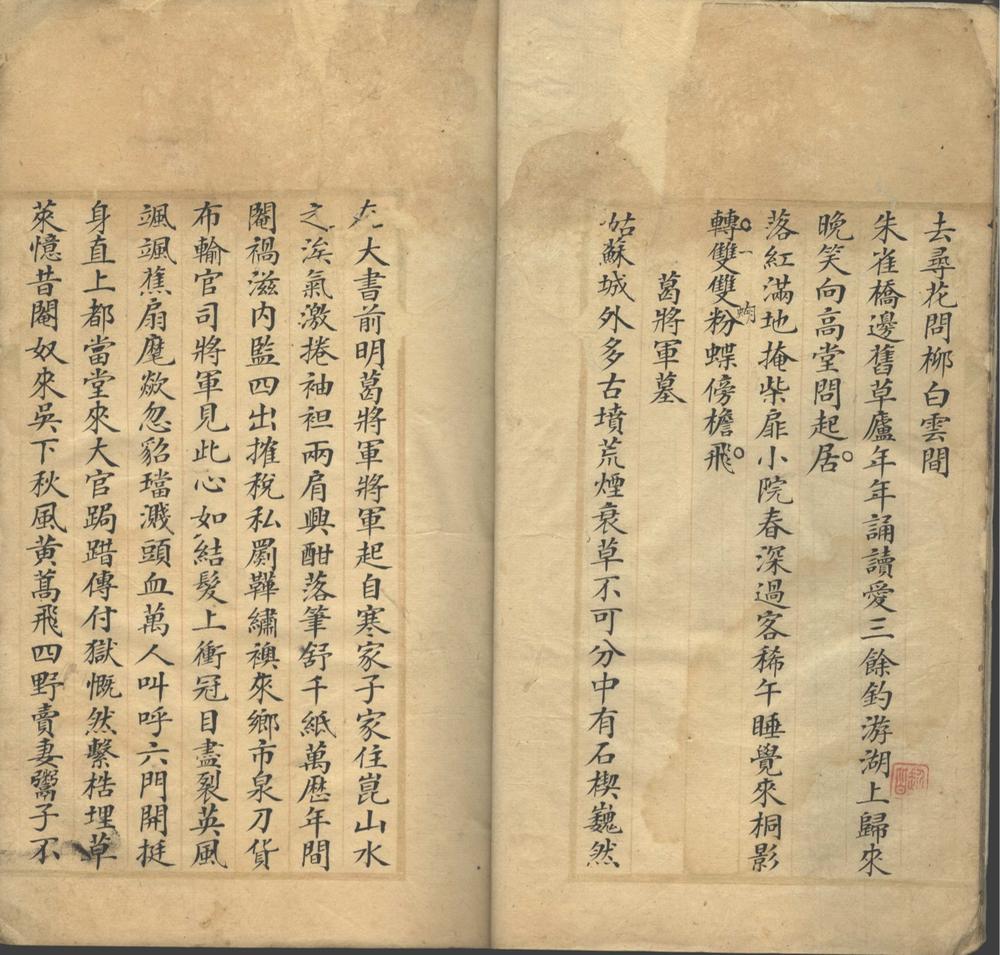 去尋花問柳白雲間
朱雀橋邊舊草廬年年誦讀愛三餘釣游湖上歸來
晚笑向高堂問起居
落紅滿地掩柴扉小院春深過客稀午睡覺來桐影
轉雙雙粉蝶傍檐飛
葛將軍墓
姑蘇城外多古墳荒煙衰草不可分中有石楔巍然
大書前明葛將軍將軍起自寒家子家住崑山水
之涘氣激捲袖袒兩肩興酣落筆舒千紙萬歷年間
閹禍滋內監四出搉稅私罽鞾繡襖來鄉市泉刀貨
布輸官司將軍見此心如結髮上衝冠目盡裂英風
颯颯蕉扇麾欻忽貂璫濺頭血萬人叫呼六門開挺
身直上都當堂來大官跼蹐傳付獄慨然繫梏埋草
萊憶昔閹奴來吳下秋風黃蒿飛四野賣妻鬻子不